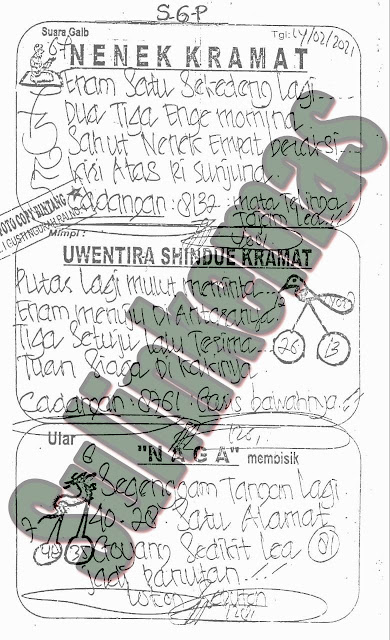 S.G.P
Suara Gaib
Tgl: 14/02/2021
NENEK KRAMAT
Enam Satu Sekedeng Lagi
Dua Tiga Enge momina
Sahut Nenek Empat beraksi
Kisi Atas Ri sunjung
Cadangan : 8132 : mata Telinga
Tajam Lea
FOTO COPY BINTANG
Mimpi :
UWENTIRA SHINDUE KRAMAT
Putas Lagi mulut meminta
Enam menuju Di Antaranya
Tiga Setuju Lalu Terima
Tuan Siaga Di kakinya
26
13
Cadangan : 8761 : Garis bawahnya
Ular
"NAGA" membisik
8
Segenggam Tangan Lagi
40-28 Satu Alamat
Goyang Sedikit Lea 01
Jadi panutan
Sulimkomas